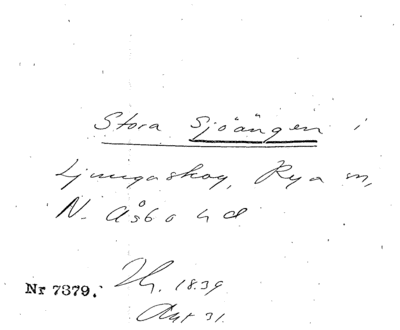 Stora Sjöängen i
Ljungaskog, Rya sn,
N. Åsbo hd
Nr 7379. Th. 1839
Akt 31.